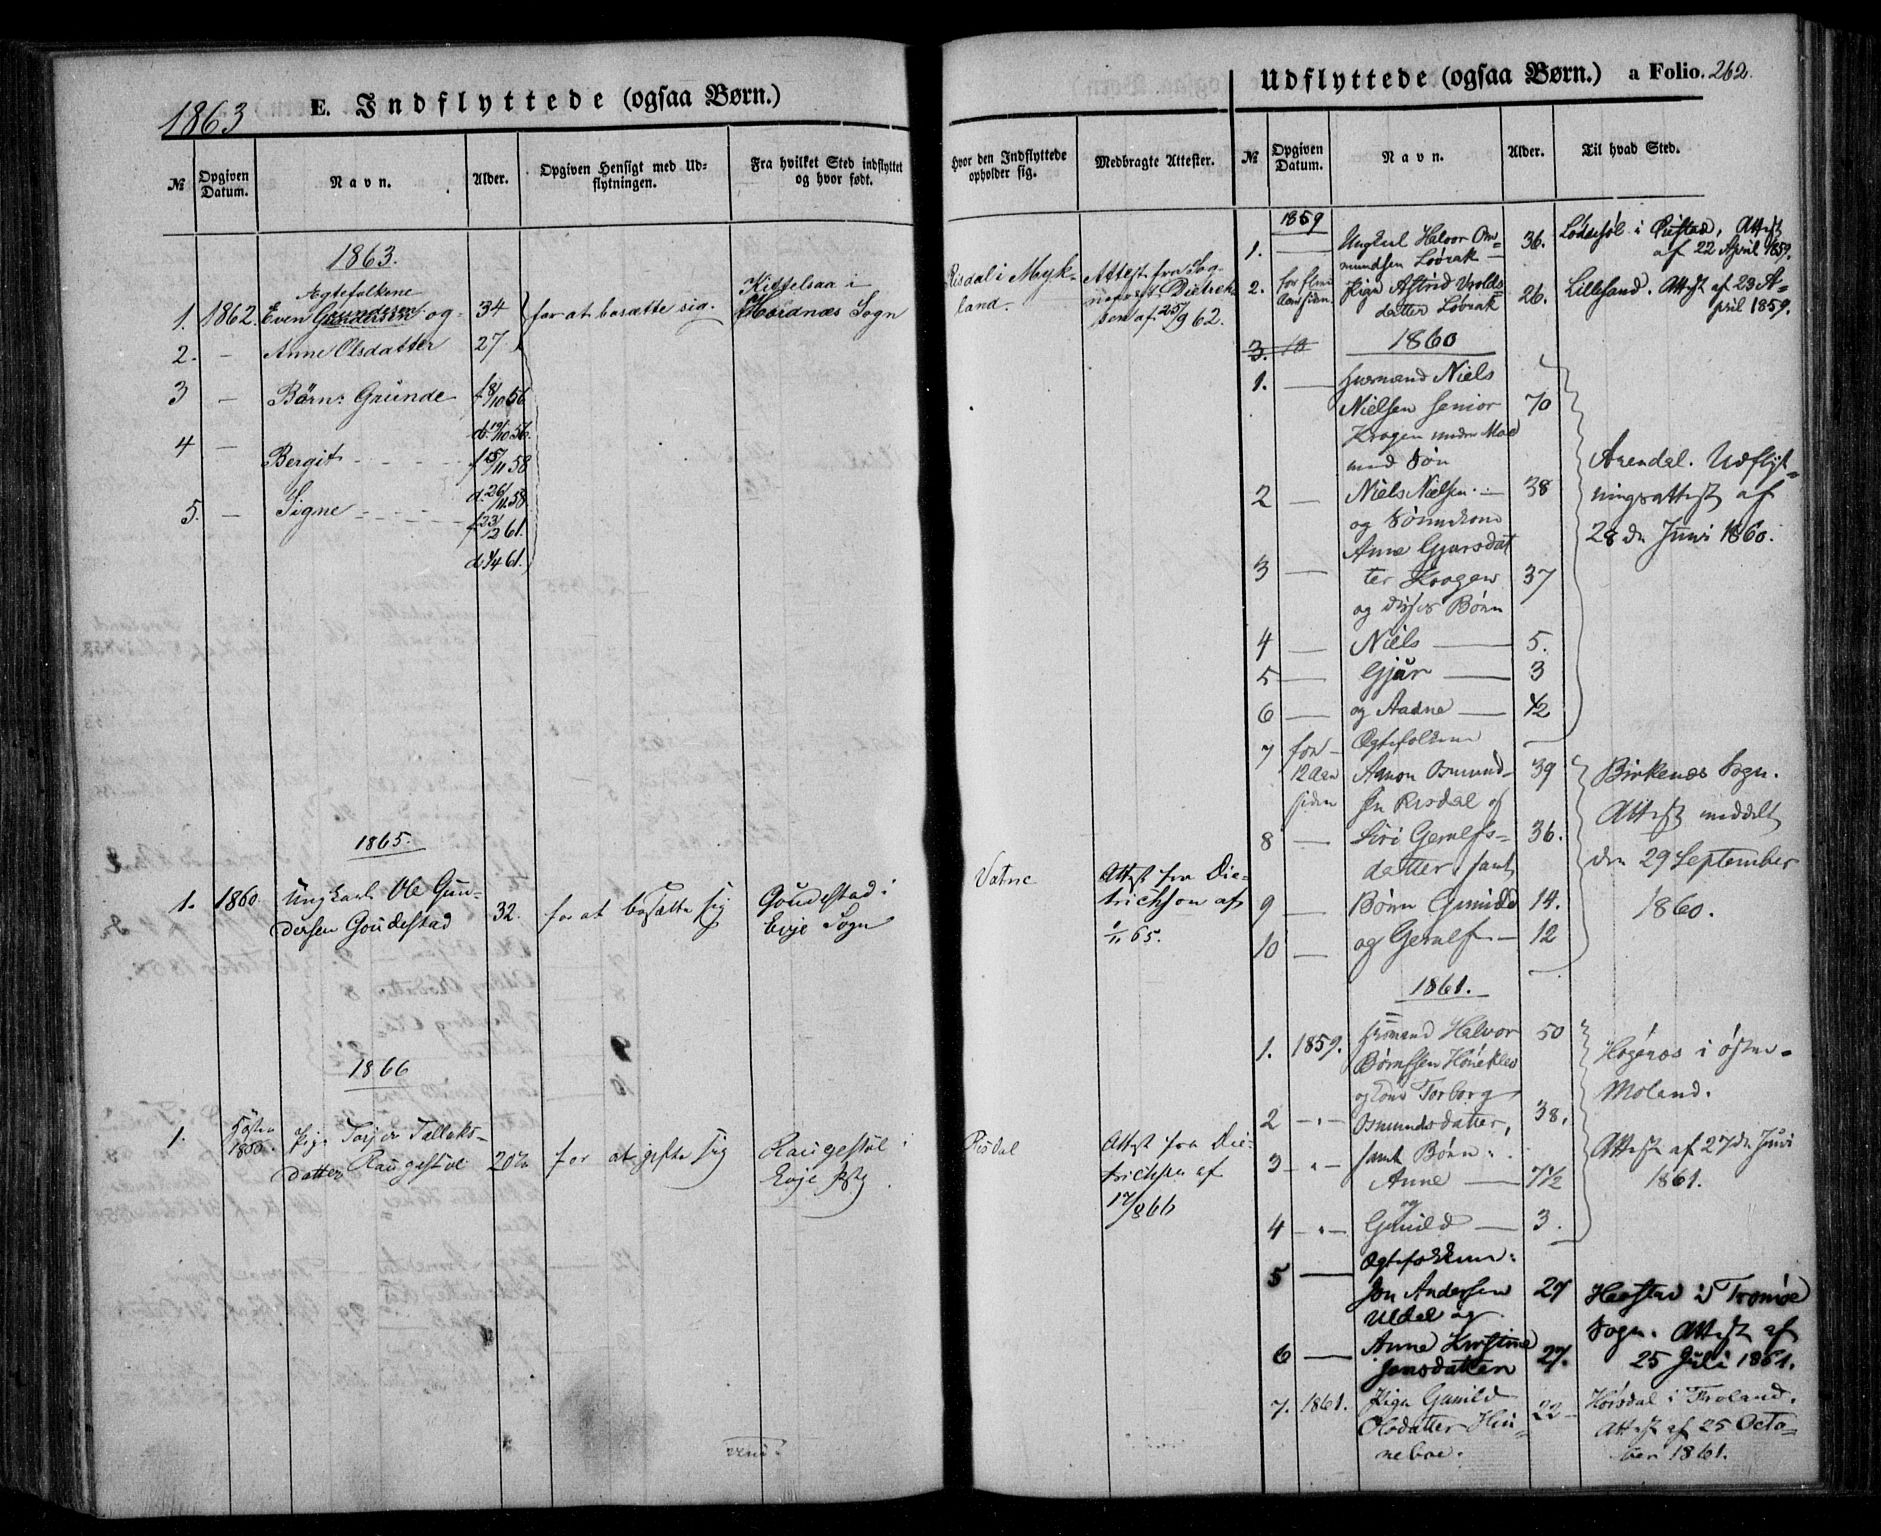 1863
E. Indflyttede (ogsaa Børn.)
№
Opgiven Datum.
Navn.
Alder.
Opgiven Hensigt med Udflytningen.
Fra hvilket Sted indflyttet og hvor født.
Hvor den Indflyttede opholder sig.
Medbragte Attester.
1863.
Ægtefolkene
1. 1862. Even Gundersen og 34 for at bosætte sig. Kittelsaa i
Hordnæs Sogn
Risdal i Mykland.
Attest fra Sognepræst Dietrichson af 25/9 62.
2. — Anne Olsdatter 27
3 — Børn: Grunde f 8/10 56
d. 19/10 56.
4 — Bergit f 15/11 58
d. 26/11 58
5. — Signe f 23/2 61.
d. 4/4 61.
1865.
1. 1860. Ungkarl Ole Gun-
dersen Goudestad 32. for at bosætte sig Goudestad i
Evje Sogn
Vatne
Attest fra Die-
trichson af
1/11 65.
1866
1. 1850. Pige Torjer Tallaks-
datter Raugestøl 20 for at gifte sig Raugestøl i
Evje
Risdal
Attest fra Die-
trichson af
17/8 66
Udflyttede (ogsaa Børn.) a Folio. 262.
№
Opgiven Datum.
Navn.
Alder.
Til hvad Sted.
1859
1. — Ungkarl Halvor Om-
mundsen Løvrak 36. Lødesøl i Øiestad, Attest
af 22 April 1859.
2. Pige Astrid
datter Løvrak 26. Lillesand. Attest af 23 A-
pril 1859.
3. 18 1860
1. — Huusmand Niels
Nielsen senior 70
Krogen under Moe
med Søn
2 — Niels Nielsen 38
og Sønnekone
Anne Gjursdat
3 — ter Krogen 37
og disses Børn
4 — Niels 5.
5 — Gjur 3
6 — og Aadne 1/2
Arendal. Udflyt-
ningsattest af
28 de Juni 1860.
7 for 12 Aar siden Ægtefolkene
Aanon Osmund- 39
sen Risdal og
8 — Siri Gerulfs- 36.
datter, samt
9 — Børn Gunild 14.
10 — og Gerulf 12
Birkenæs Sogn.
Attest meddelt
den 29 September
1860.
1861.
1. 1859. Husmand Halvor 50
og Kone Torborg
2 Osmundsdatter, 38.
3 samt Børn
Anne 7 1/2
og
4 Gunild 3.
i Øster-
Moland.
Attest af 27 de Juni
1861.
5 — Ægtefolkene:
Jon Andersen 27
Uldal og
6 — Anne Kirstine
Jensdatter 27.
Harstad i Tromøe
Sogn. Attest af
25 Juli 1861.
7. 1861. Pige Gunild
Olsdatter Hin- 22
neboe.
i Froland.
Attest af 25 Octo-
ber 1861.